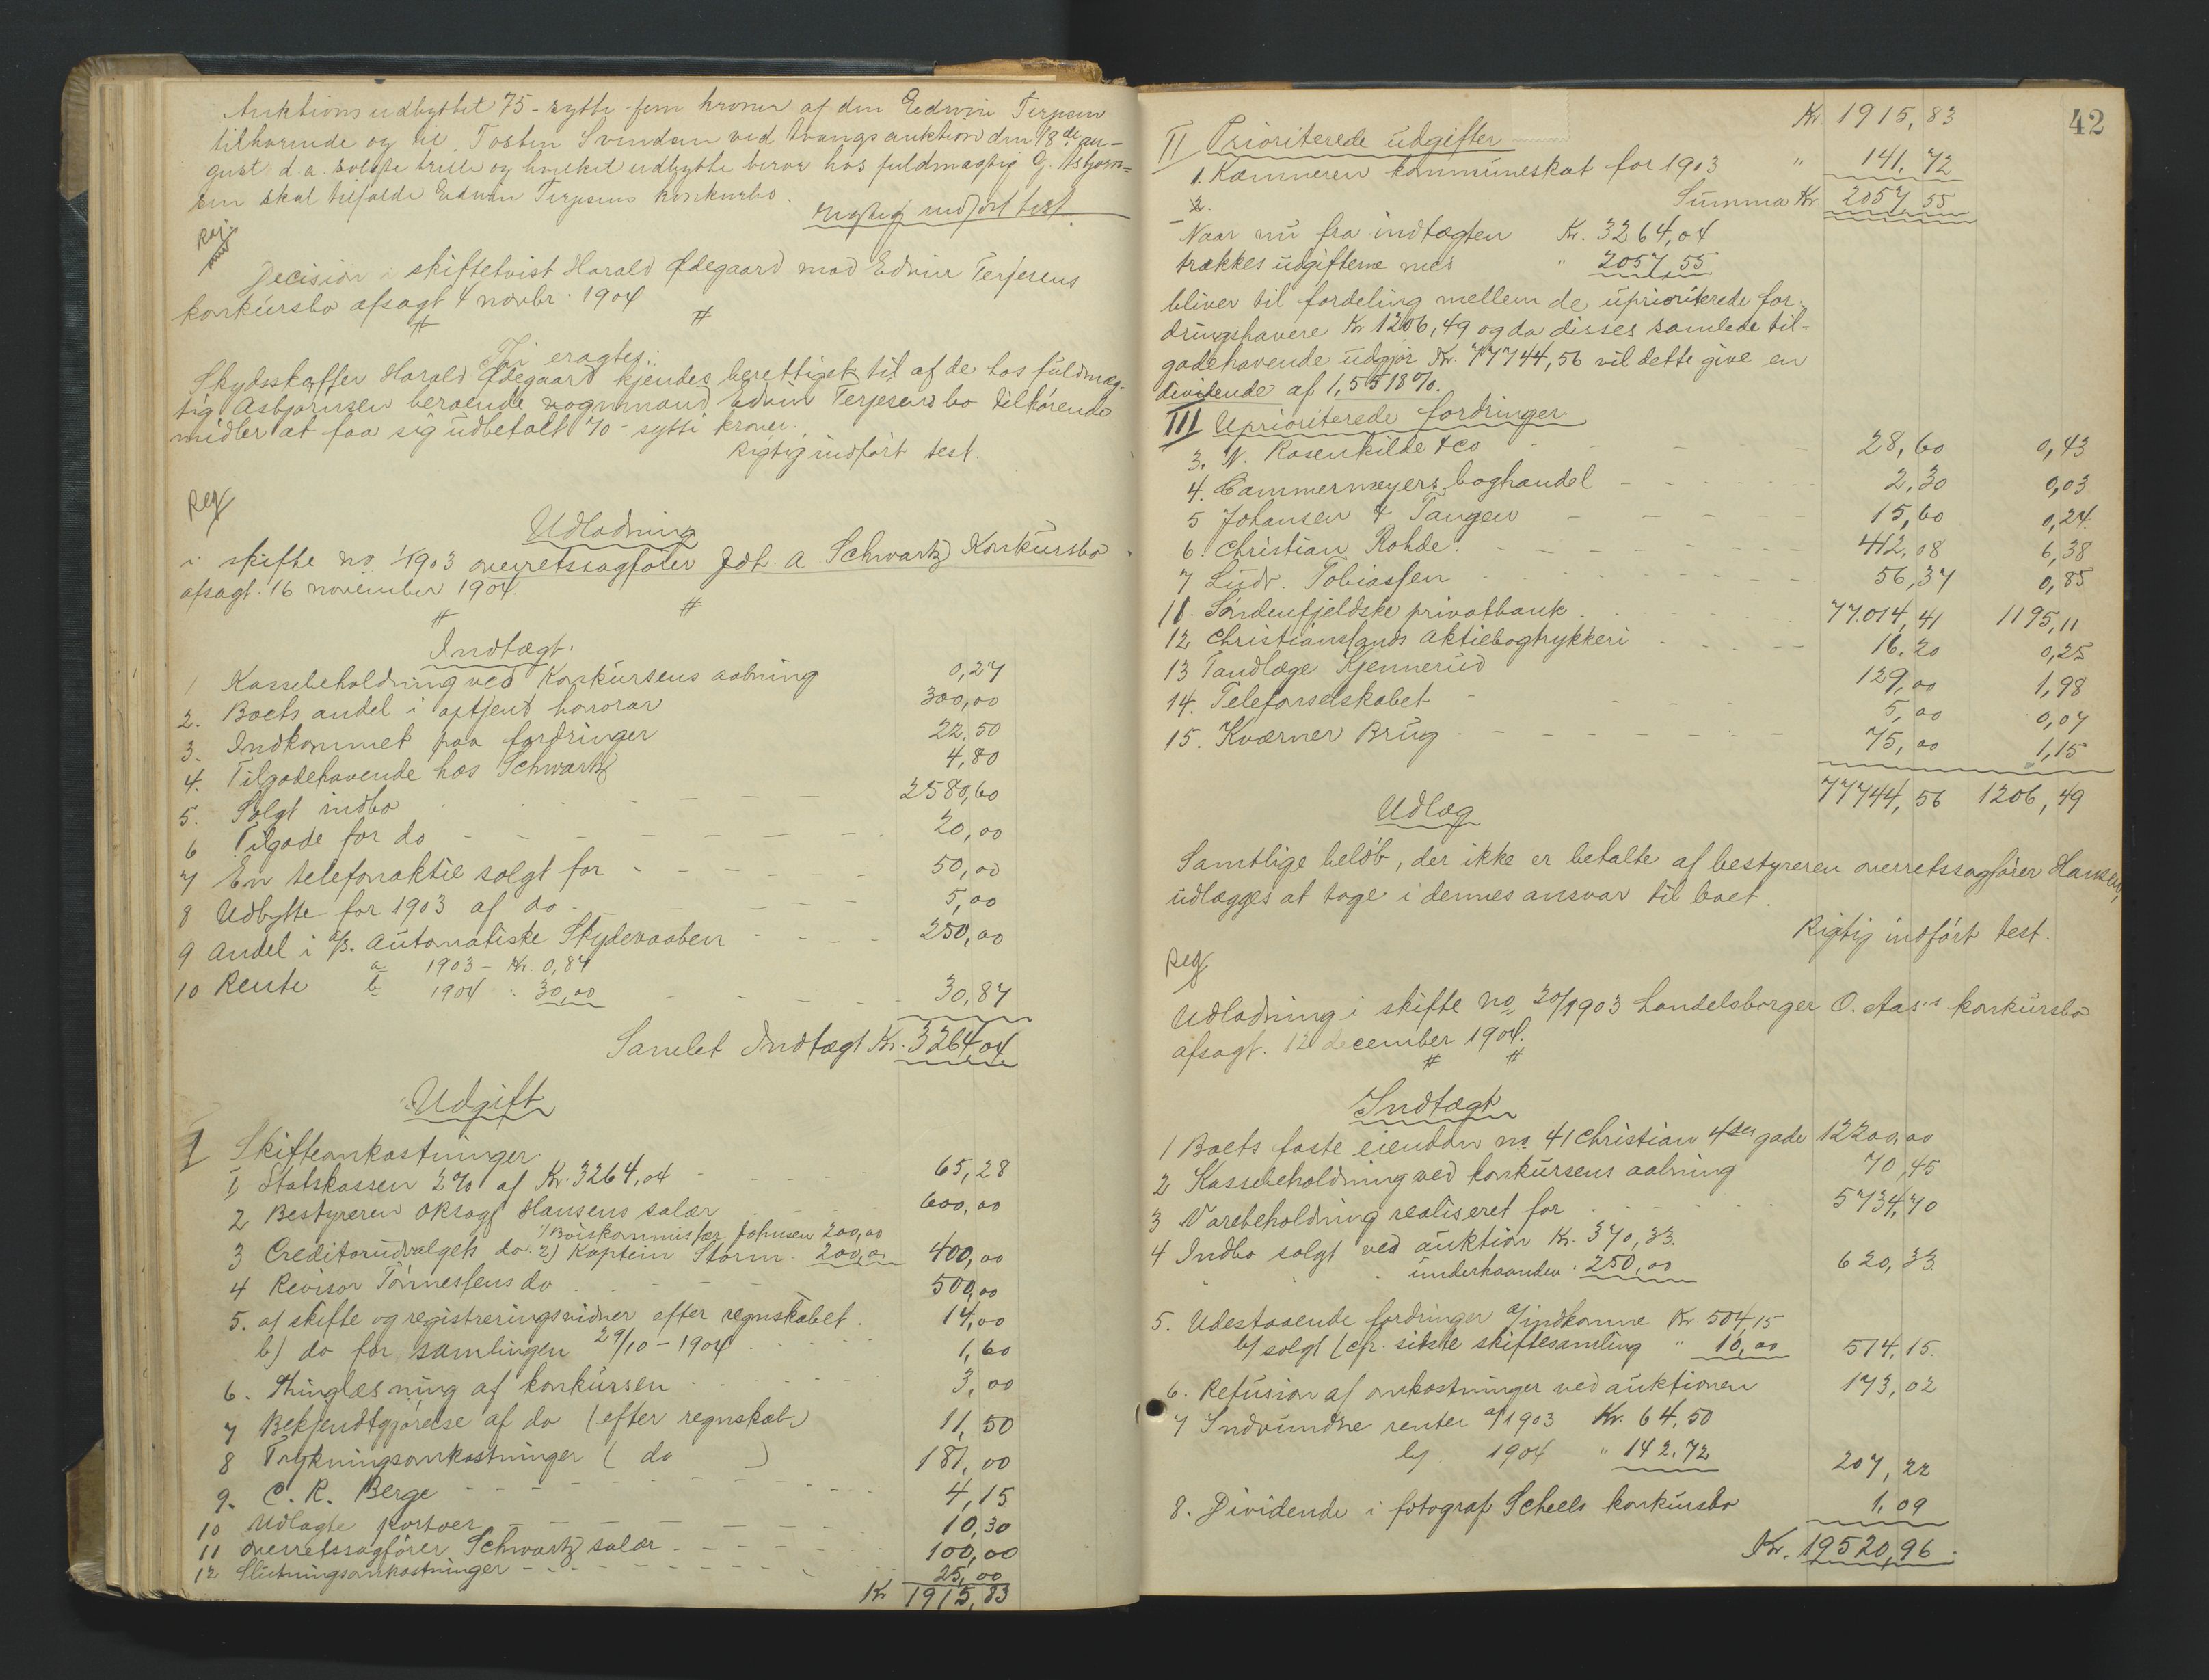 Auktionsudbyttet 75 - sytti-fem kroner af den Edwin Terjesen
tilhørende og til Tosten Svendsen ved tvangsauktion den 18de au-
gust d.a. solgte trille og hvilket udbytte beror hos fuldmægtig G. Asbjørn-
sen skal tilfalde Edwin Terjesens konkursbo.
Rigtig indført test.
Reg
Decision i skiftetvist Harald Ødegaard mod Edvin Terjesens
konkursbo afsagt 4 novbr. 1904
# #
Thi eragtes:
Skydsskaffer Harald Ødegaard kjendes berettiget til af de hos fuldmæg-
tig Asbjørnsen beroende vognmand Edvin Terjesens bo tilhørende
midler at faa sig udbetalt 70 - sytti kroner.
Rigtig indført test.
Reg
Udlodning
i skifte no 1/1903 overretssagfører Joh. A. Schwartz Konkursbo
afsagt 16 november 1904.
# #
Indtægt.
1 Kassebeholdning ved Konkursens aabning 0,27
2. Boets andel i optjent honorar 300,00
3. Indkommet paa fordringer 22,50
4. Tilgodehavende hos Schwartz 4,80
5. Solgt indbo 2580,60
6 Tilgode for do 20,00
7 En telefonaktie solgt for 50,00
8 Udbytte for 1903 af do 5,00
9 Andel i a/s. Automatiske Skydevaaben 250,00
10 Rente a 1903 - Kr. 0,87
b 1904 " 30,00 30,87
Samlet Indtægt Kr. 3264,04
Udgift
I Skifteomkostninger
1, Statskassen 2% af Kr. 3264,04 65,28
2 Bestyreren Orsagf Hansens salær 600,00
1/ Boiskommissær Johnsen 200,00
3 Creditorudvalgets do 2) Kaptein Storm 200,00 400,00
4 Revisor Tönnessens do 500,00
5. a) skifte og registreringsvidner efter regnskabet 14,00
b) do for samlingen 29/10 - 1904 1,60
6. Thinglæsning af konkursen 3,00
7 Bekjendtgjørelse af do (efter regnskab) 11,50
8 Trykningsomkostninger ( do ) 181,00
9. C. R. Berge 4,15
10 Udlagte portoer 10,30
11 Overretssagfører Schwartz salær 100,00
12 Slutningsomkostninger 25,00
Kr 1915,83
42
Kr 1915,83
II Prioriterede udgifter
1. Kæmneren kommuneskat for 1903 " 141,72
2. Summa Kr 2057,55
Naar nu fra indtægten Kr. 3264,04
trækkes udgifterne med " 2057,55
bliver til fordeling mellem de uprioriterede for-
dringshavere Kr 1206,49 og da disses samlede til-
godehavende udgjør Kr. 77744,56 vil dette give en
dividende af 1,5518%.
III Uprioriterede fordringer
3. N. Rosenkilde & Co 28,60 0,43
4. Cammermeyers boghandel 2,30 0,03
5 Johansen & Tangen 15,60 0,24
6. Christian Rohde 412,08 6,38
7 Ludv. Tobiassen 56,37 0,85
11. Söndenfjeldske privatbank 77.014,41 1195,11
12 Christianssands Aktiebogtrykkeri 16.20 0,25
13 Tandlæge Kjennerud 129,00 1,98
14. Telefonselskabet 5,00 0,07
15. Kværner Brug 75,00 1,15
77744,56 1206,49
Udlæg
Samtlige beløb, der ikke er betalte af bestyreren overretssagfører Hansen,
udlægges at tage i dennes ansvar til boet.
Rigtig indført test.
Reg
Udlodning i skifte no 20/1903 handelsborger O. Aas's konkursbo
afsagt. 12 december 1904.
# #
Indtægt
1 Boets faste eiendom no 41 Christian 4des gade 12200,00
2 Kassebeholdning ved konkursens aabning 70,45
3 Varebeholdning realiseret for 5734,70
4 Indbo solgt ved auktion Kr. 370,33.
" " underhaanden " 250,00 620,33
5. Udestaaende fordringer a/ indkomne Kr. 504,15
b/ solgt (cfr. sidste skiftesamling " 10,00 514,15.
6. Refusion af omkostninger ved auktionen 173,02
7 Indvundne renter a/ 1903 Kr. 64,50
b/ 1904 " 142.72 207,22
8. Dividende i fotograf Scheels konkursbo 1,09
Kr. 19520,96